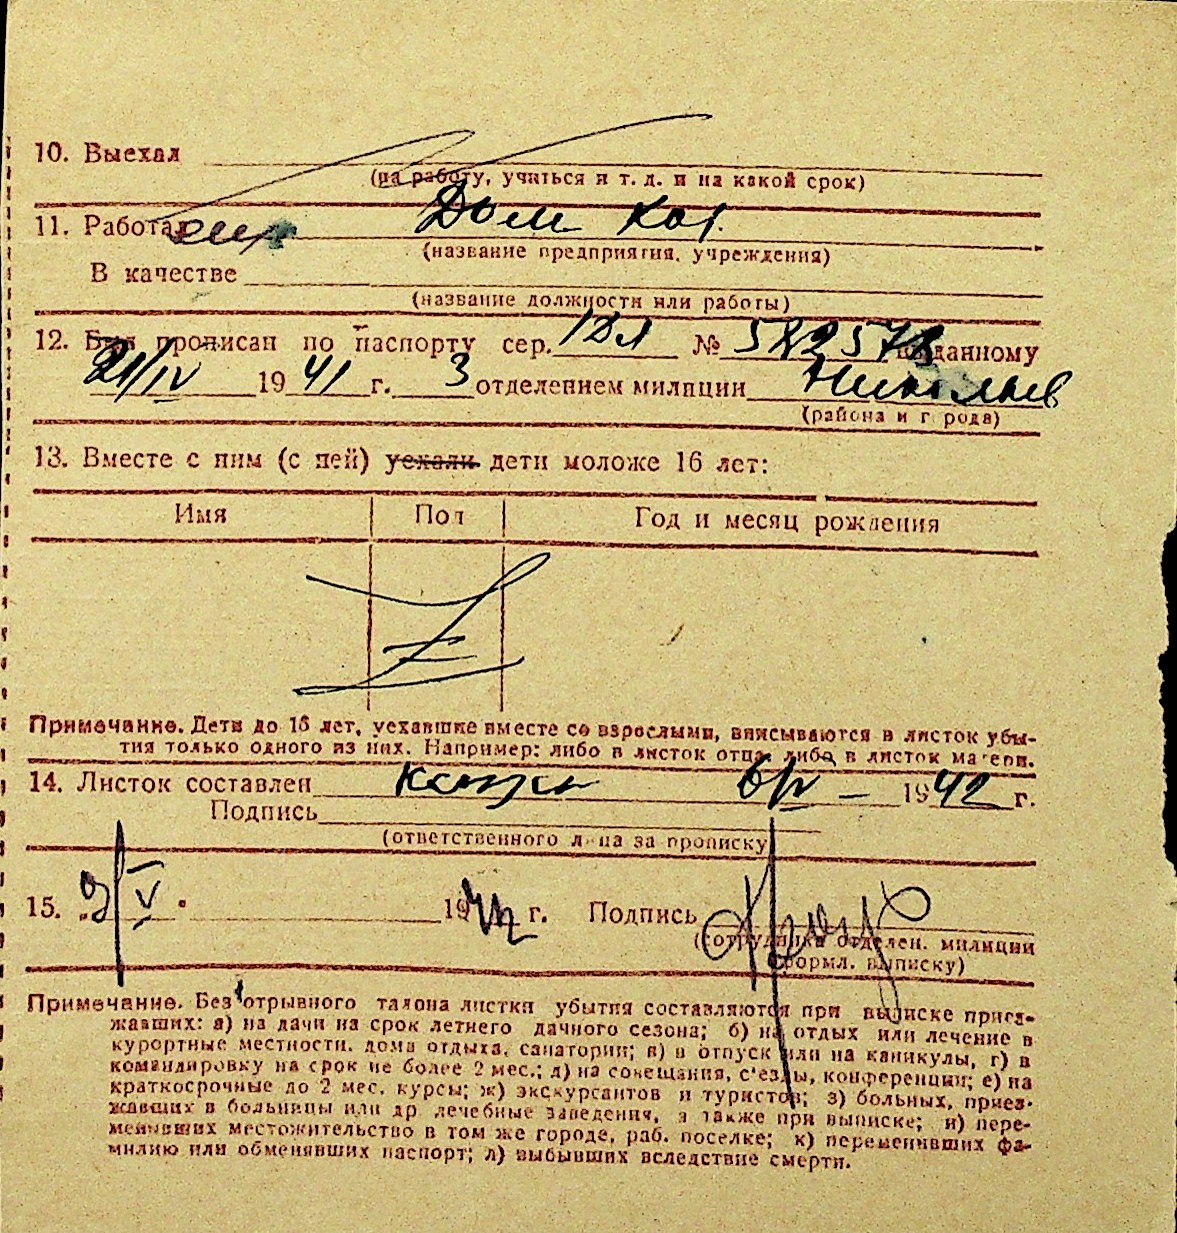 10. Выехал
(на работу, учиться и т. д. и на какой срок)
11. Работал Дом хоз.
(название предприятия, учреждения)
В качестве
(название должности или работы)
12. Был прописан по паспорту сер. № выданному
21/IV 1941 г. 3 отделением милиции Николаев
(района и города)
13. Вместе с ним (с ней) уехали дети моложе 16 лет:
Имя Пол Год и месяц рождения
Примечание. Дети до 16 лет, уехавшие вместе со взрослыми, вписываются в листок убы-
тия только одного из них. Например: либо в листок отца, либо в листок матери.
14. Листок составлен 6/IV 1942 г.
Подпись
(ответственного лица за прописку)
15. 19 г. Подпись
(сотрудника отделен. милиции
оформл. выписку)
Примечание. Без отрывного талона листки убытия составляются при выписке приез-
жавших: а) на дачи на срок летнего дачного сезона; б) на отдых или лечение в
курортные местности, дома отдыха, санатории; в) в отпуск или на каникулы, г) в
командировку на срок не более 2 мес.; д) на совещания, с'езды, конференции; е) на
краткосрочные до 2 мес. курсы; ж) экскурсантов и туристов; з) больных, приез-
жавших в больницы или др лечебные заведения, а также при выписке; и) пере-
менивших местожительство в том же городе, раб. поселке; к) переменивших фа-
милию или обменявших паспорт; л) выбывших вследствие смерти.